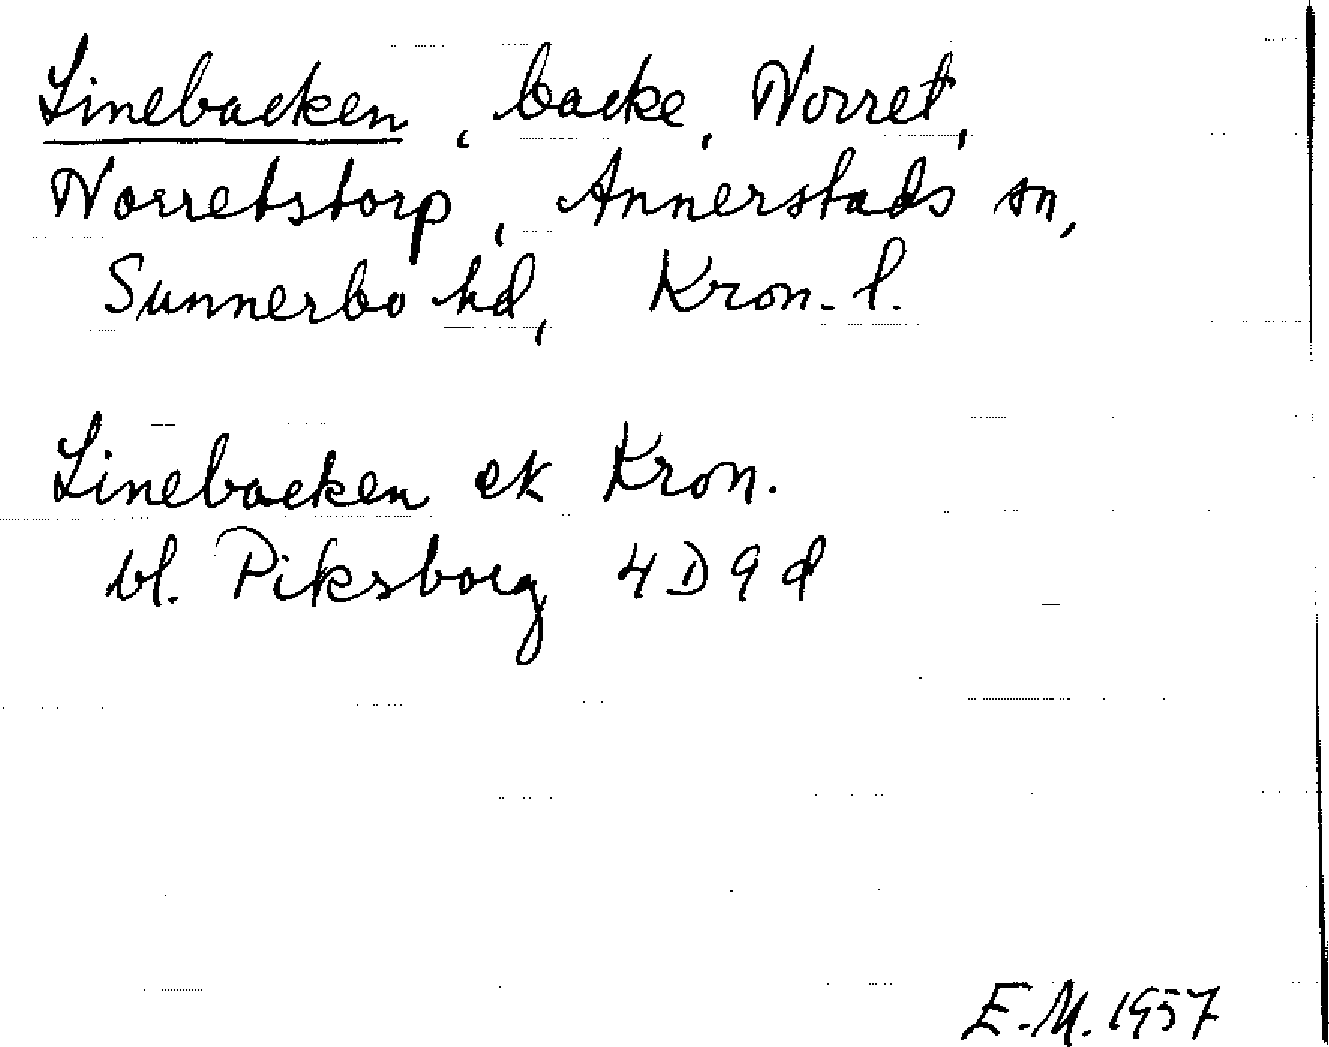 Linebacken, backe, Norret,
Norretstorp, Annerstads sn,
Sunnerbo hd, Kron. l.
Linebacken ek Kron.
bl. Piksborg 4D9d
E.M. 1957